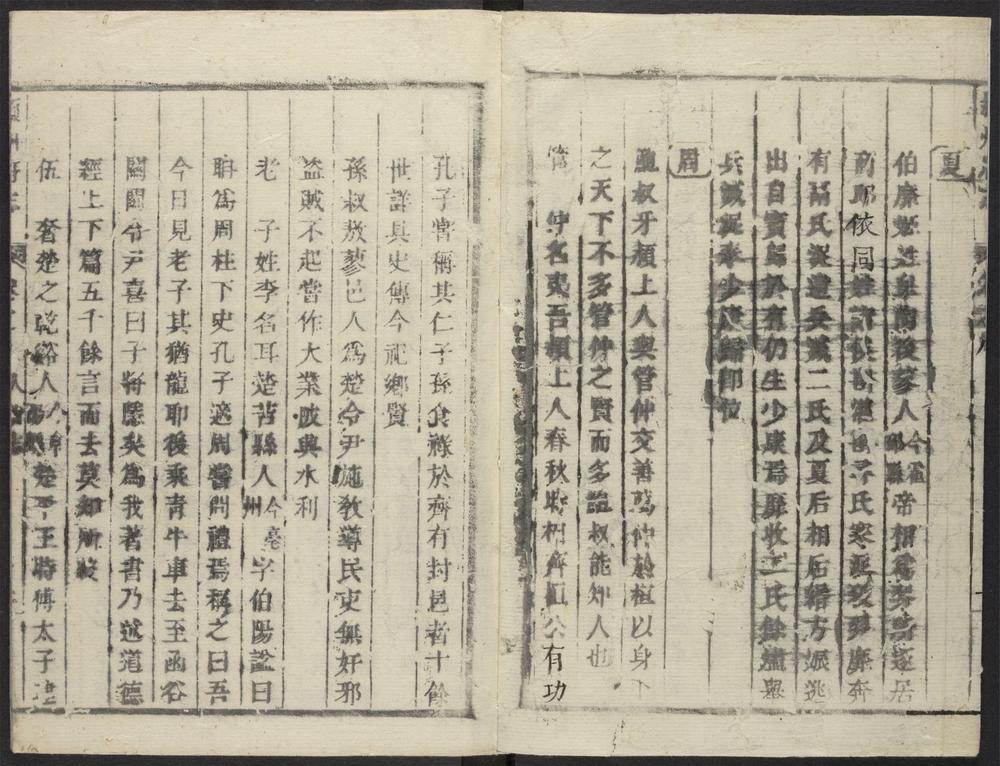 夏
伯靡姓皐陶後蓼人今霍邱縣帝相爲羿所逐居
商邱依同姓諸侯斟灌斟尋氏寒浞殺羿靡奔
有鬲氏浞遣奡滅二氏及夏后相后緡方娠逃
出自竇歸於有仍生少康焉靡收二氏餘燼舉
兵滅浞奉少康歸即位
周
鮑叔牙潁上人與管仲交善薦仲於桓以身下
之天下不多管仲之賢而多鮑叔能知人也
管仲名夷吾潁上人春秋時相齊桓公有功
孔子嘗稱其仁子孫食祿於齊有封邑者十餘
世詳具史傳今祀鄉賢
孫叔敖蓼邑人爲楚令尹施教導民吏無奸邪
盜賊不起嘗作大業陂興水利
老子姓李名耳楚苦縣人今亳州字伯陽諡曰
聃爲周柱下史孔子適周嘗問禮焉稱之曰吾
今日見老子其猶龍耶後乘青牛車去至函谷
關關令尹喜曰子將隱矣爲我著書乃述道德
經上下篇五千餘言而去莫知所終
伍奢楚之乾谿人楚平王時傅太子建